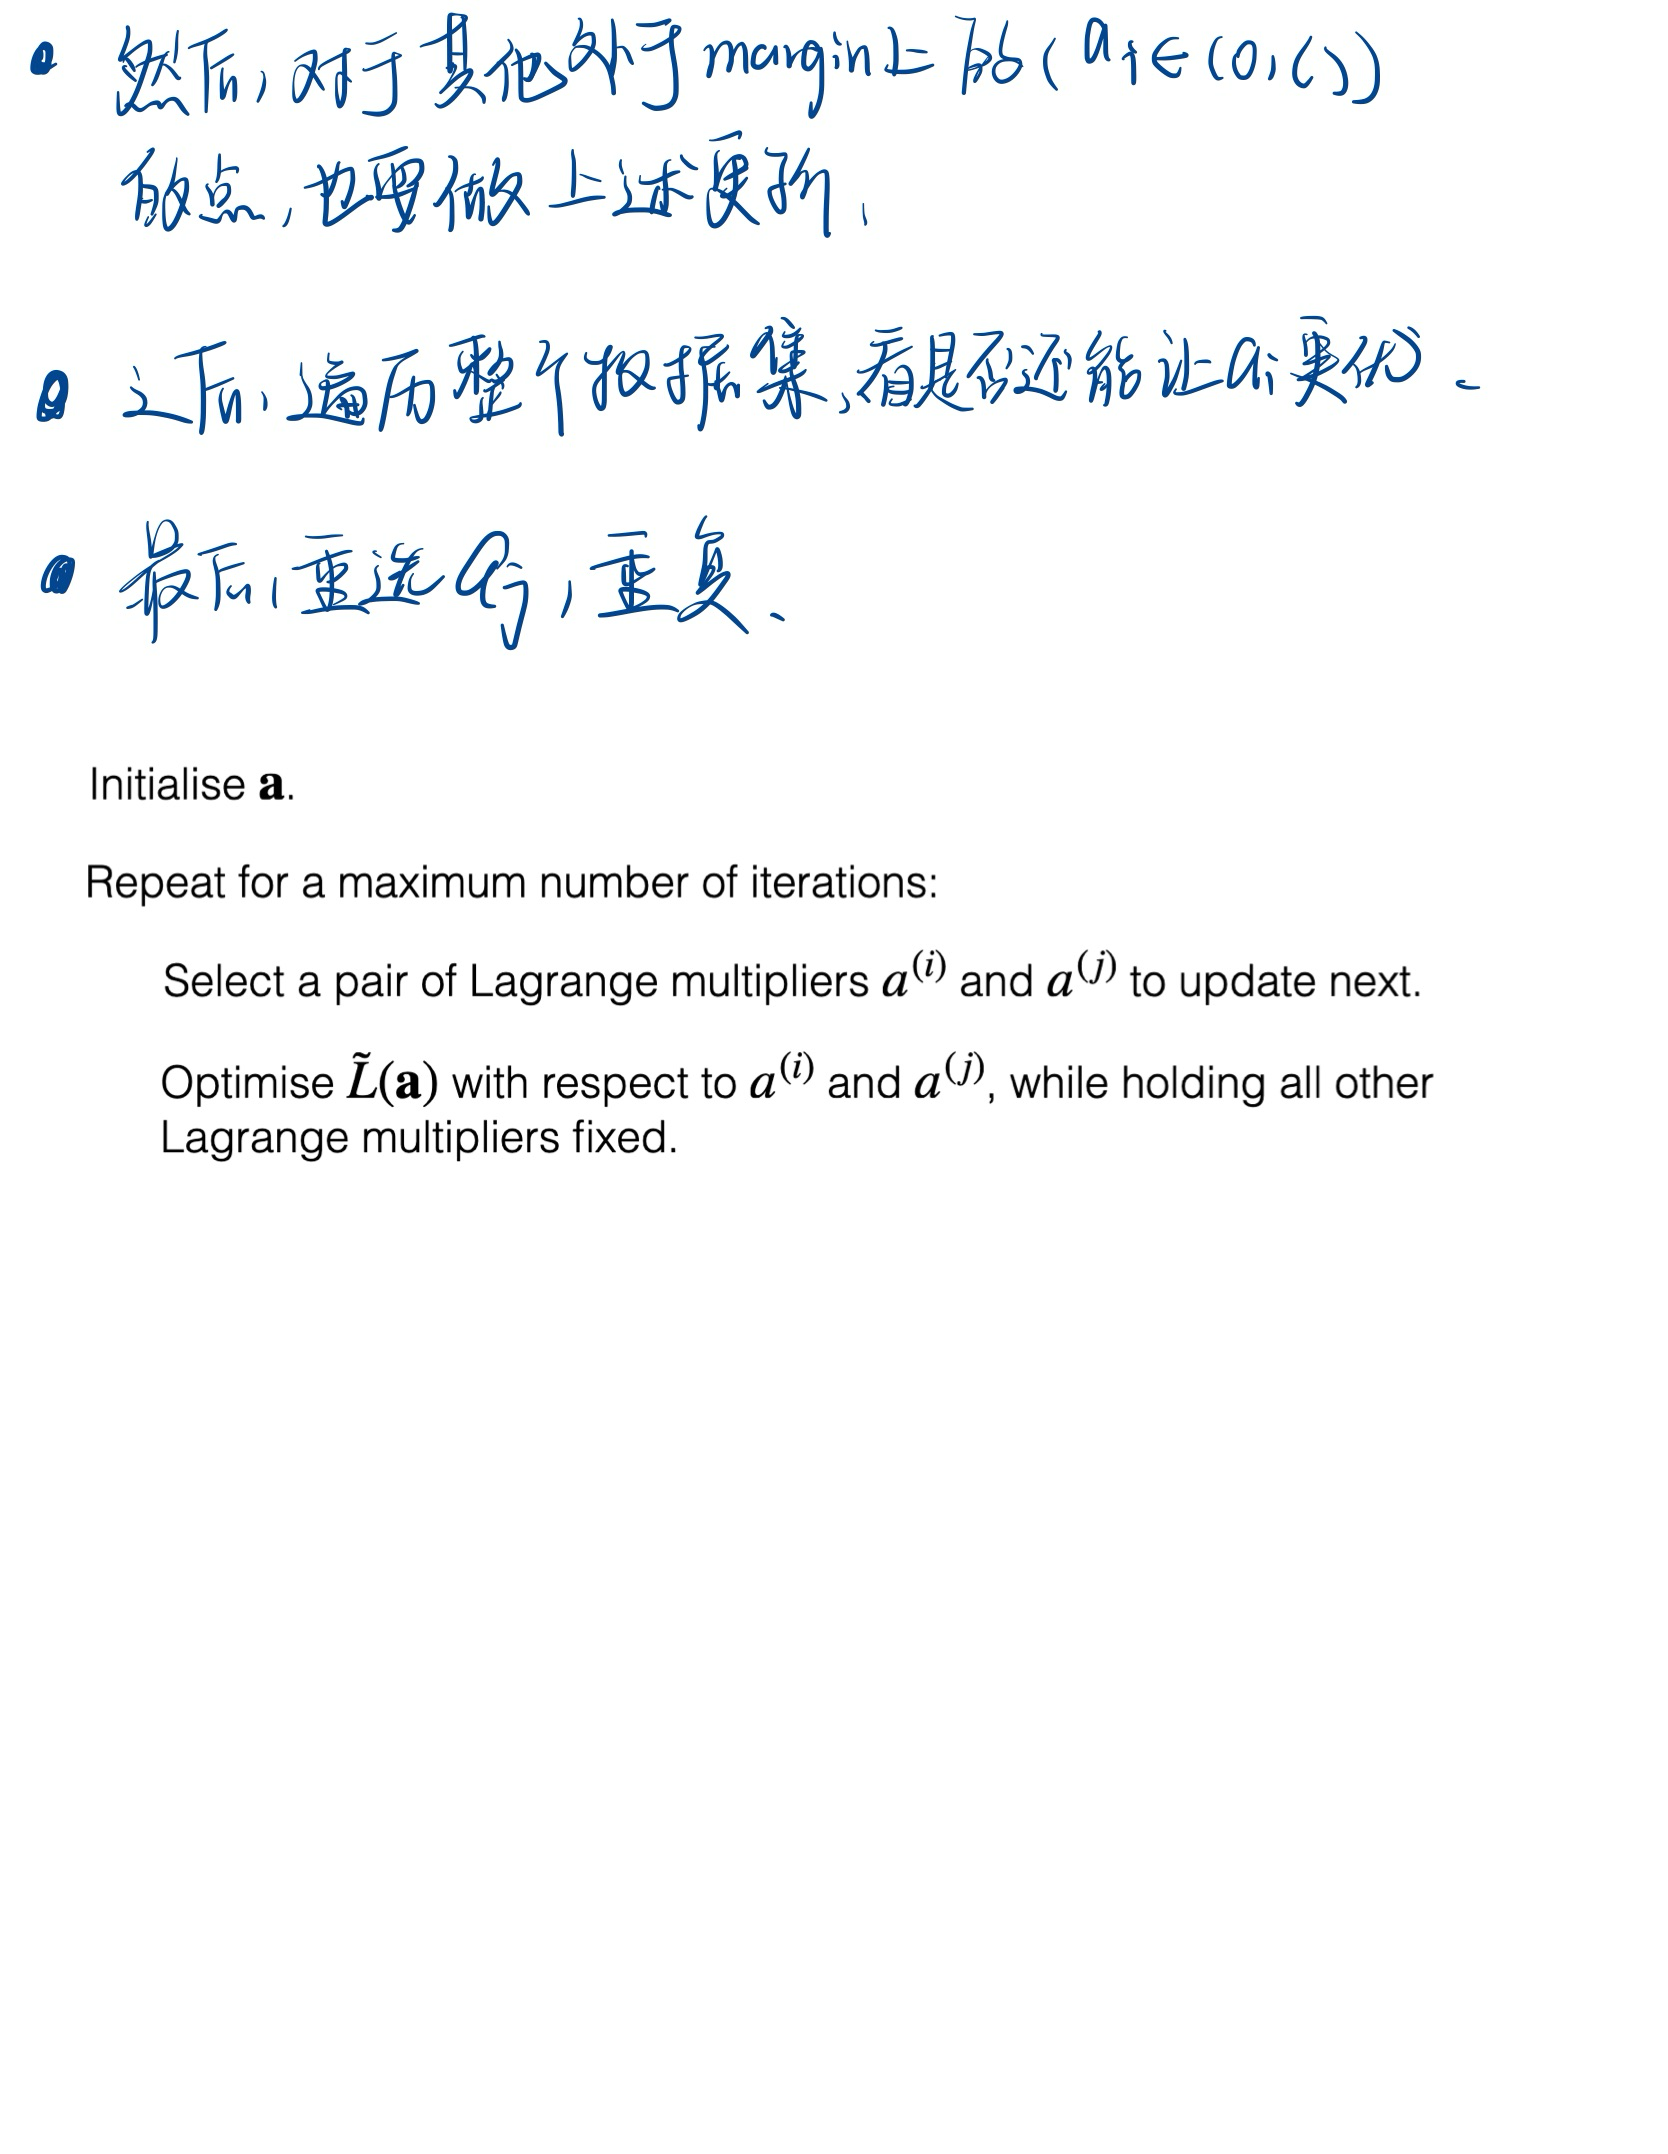 然后,对于其他处于margin上的(aᵢ∈(0,C))
的点,也要做上述更新.
之后,遍历整个数据集,看是否还能让aᵢ更优.
最后,重选aⱼ,重复.
Initialise a.
Repeat for a maximum number of iterations:
Select a pair of Lagrange multipliers a⁽ⁱ⁾ and a⁽ʲ⁾ to update next.
Optimise L̃(a) with respect to a⁽ⁱ⁾ and a⁽ʲ⁾, while holding all other
Lagrange multipliers fixed.